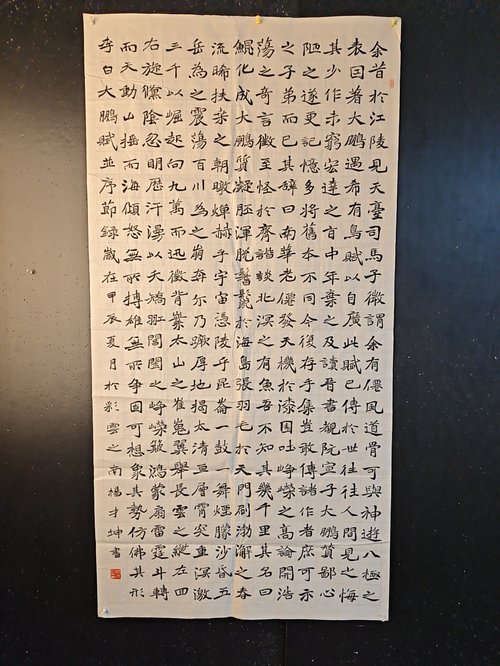 余昔於江陵見天臺司馬子微謂余有僊風道骨可與神遊八極之
表因著大鵬遇希有鳥賦以自廣此賦已傳於世往往人間見之悔
其少作未窮宏達之旨中年棄之及讀晉書覩阮宣子大鵬贊鄙心
陋之遂更記憶多將舊本不同今復存手集豈敢傳諸作者庶可示
之子弟而已其辭曰南華老僊發天機於漆園吐崢嶸之高論開浩
蕩之奇言徵至怪於齊諧談北溟之有魚吾不知其幾千里其名曰
鯤化成大鵬質凝胚渾脫鬐鬣於海島張羽毛於天門刷渤澥之春
流晞扶桑之朝暾燀赫乎宇宙憑陵乎昆崙一鼓一舞煙朦沙昏五
岳為之震蕩百川為之崩奔尔乃蹶厚地揭太清亘層霄突重溟激
三千以崛起向九萬而迅徵背嶪太山之崔嵬翼舉長雲之縱左回
右旋倏陰忽明歷汗漫以夭矯羾閶闔之崢嶸簸鴻蒙扇雷霆斗轉
而天動山搖而海傾怒無所搏雄無所爭固可想象其勢仿佛其形
李白大鵬賦並序節錄歲在甲辰夏月於彩雲之南楊才坤書